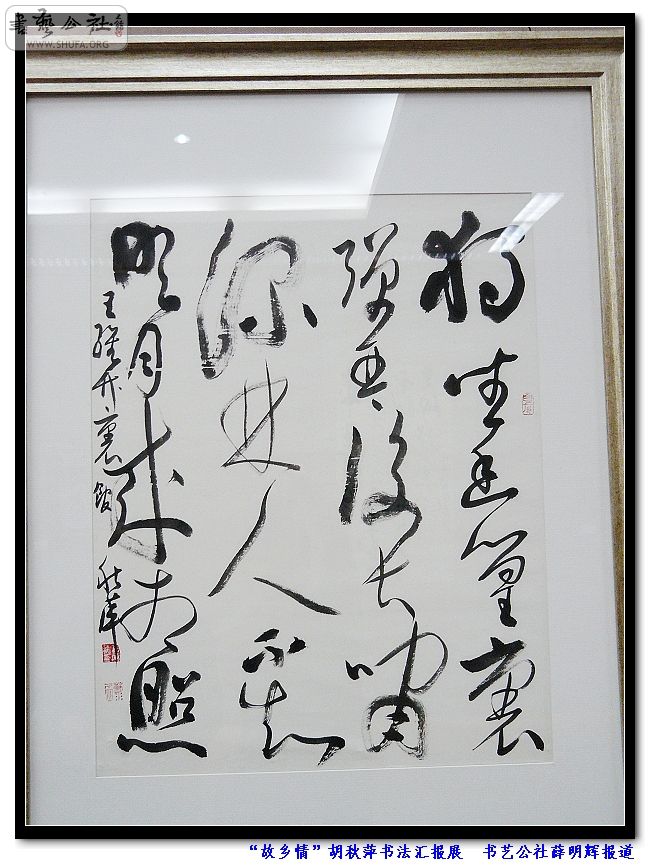 書藝公社
WWW.SHUFA.ORG
独坐幽篁裏
弹琴复长啸
深林人不知
明月来相照
王维竹裏馆 秋萍
“故乡情”胡秋萍书法汇报展 书艺公社薛明辉报道